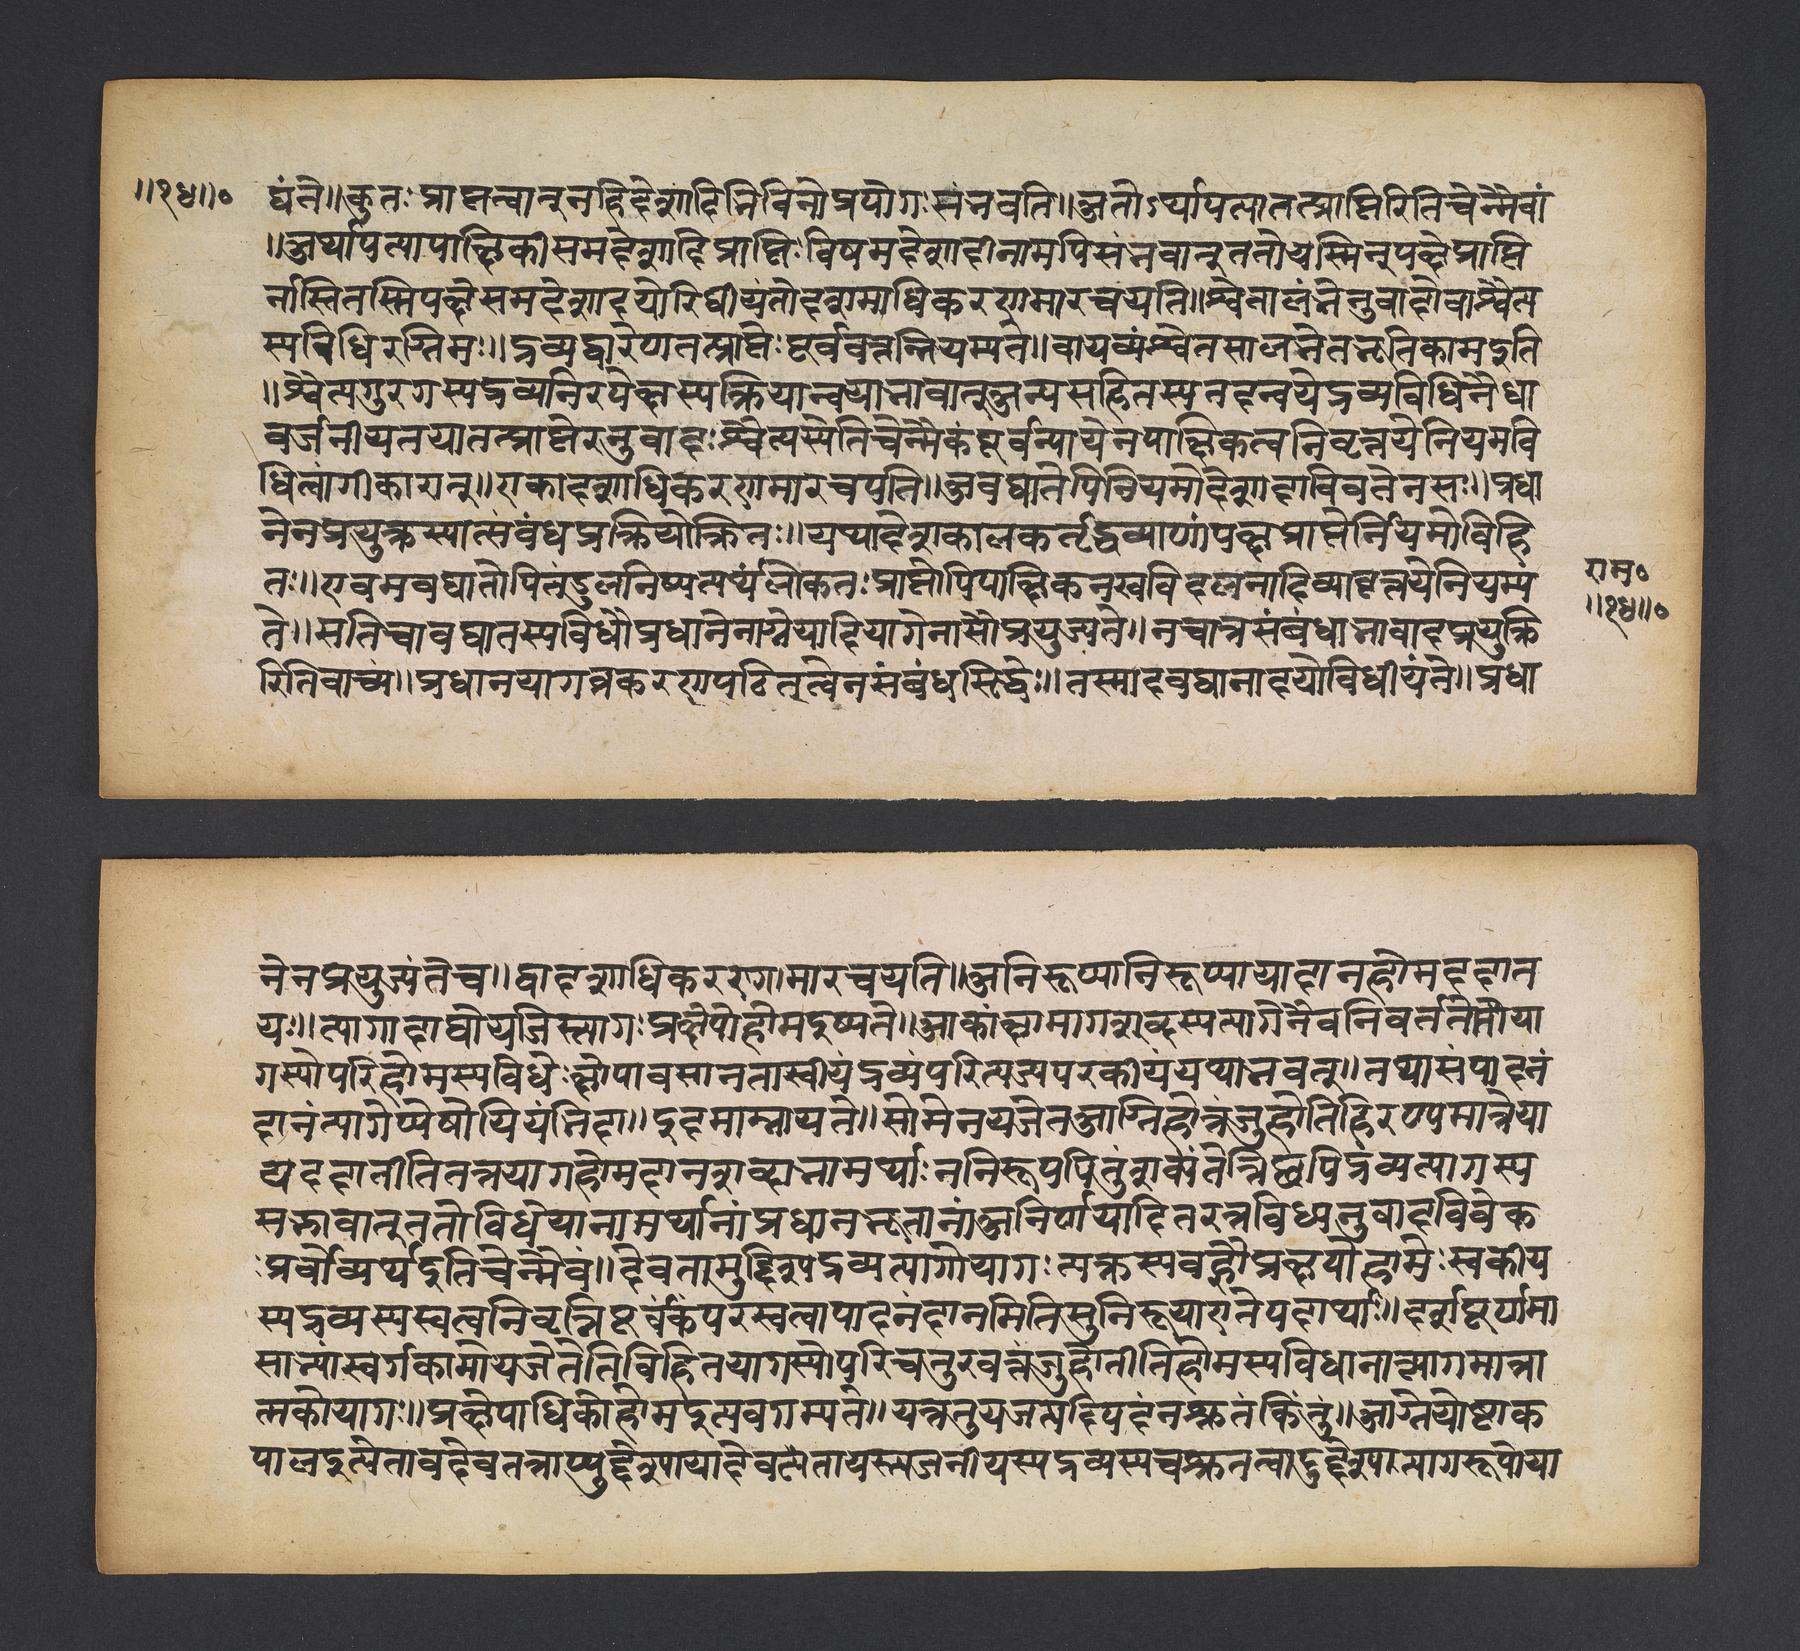 ॥१४॥० द्यंते॥कुतःप्राप्तत्वात्नहिदेशादिभिर्विनाप्रयोगःसंभवति॥अतोऽर्थापत्यातत्प्राप्तिरितिचेन्मैवां
॥अर्थापत्यापाक्षिकीसमदेशादिप्राप्तिःविषमदेशादीनामपिसंभवात्ततोयस्मिन्पक्षेप्राप्ति
र्नास्तितस्मिपक्षेसमदेशादयोविधीयंतोदशमाधिकरणमारचयति॥श्वेतालंभेनुवादोवाश्वैत्य
स्यविधिरग्रिमः॥द्रव्यद्वारेणतत्प्राप्तेःपूर्ववन्नन्नियम्यते॥वायव्यंश्वेतसालभेतभूतिकामइति
॥श्वैत्यगुणस्यद्रव्यनिरपेक्षस्यक्रियान्वयाभावात्अन्यसहितस्यतदन्वयेद्रव्यविधिनैधा
वर्जनीयतयातत्प्राप्तेरनुवादःश्वैत्यस्येतिचेन्मैकंपूर्वन्यायेनपाक्षिकत्वनिवृत्तयेनियमवि
धित्वांगीकारात्॥एकादशाधिकरणमारचयति॥अवघातेपिनियमोदेशादाविवतेनसः॥प्रधा
नेनप्रयुक्तस्यात्संबंधप्रक्रियोक्तितः॥यथादेशकालकर्तृद्रव्याणांपक्षप्राप्तेर्नियमोविहि
तः॥एवमवघातोपितंडुलनिष्पत्यर्थंलोकतःप्राप्तोपिपाक्षिकनखविदलनादिव्यावृत्तयेनियम्यं राम०
ते॥सतिचावघातस्यविधौप्रधानेनाग्नेयादियागेनासौप्रयुज्यते॥नचात्रसंबंधाभावादप्रयुक्ति ॥१४॥०
रितिवाच्यं॥प्रधानयागप्रकरणपठितत्वेनसंबंधसिद्धेः॥तस्मादवघातादयोविधीयंते॥प्रधा
नेनप्रयुज्यंतेच॥द्वादशाधिकरणमारचयति॥अनिरूप्यानिरूप्यायादानहोमददात
यः॥त्यागादाघीयजिस्त्यागःप्रक्षेपोहोमइष्यते॥आकांक्षामागशब्दस्यत्यागेनैवनिवर्ततेभौया
गस्योपरिहोमस्यविधेःक्षेपावसानतास्वीयंद्रव्यंपरित्यज्यपरकीयंयथाभवत्॥तथासंपादनं
दानंत्यागेप्येषोयियंभिदा॥इदमाम्नायते॥सोमेनयजेतआग्निहोत्रंजुहोतिहिरण्यमात्रेया
यददातीतितत्रयागहोमदानशब्दानामर्थाःननिरूपयितुंशक्यंतेत्रिष्वपिद्रव्यत्यागस्य
सद्भावात्ततोविधेयानामर्थानांप्रधानभूतानांअनिर्णयादितरत्रविध्यनुवादविवेक
ःप्रर्वोव्यर्थइतिचेन्मैवं॥देवतामुद्दिश्यद्रव्यत्यागोयागःत्यक्तस्यवह्नौप्रक्षपोहामेःस्वकीय
स्यद्रव्यस्यस्वत्वनिवृत्तिपूर्वकंपरस्वत्वापादनंदानमितिसुनिरूपाएतेपदार्थाः॥दर्शपूर्णमा
साभ्यांस्वर्गकामोयजेतेतिविहितयागस्योपरिचतुरवत्तंजुहोतीतिहोमस्यविधानात्त्यागमात्रा
त्मकोयागः॥प्रक्षेपाधिकोहोमइत्यवगम्यते॥यत्रतुयजत्यदिपदंनश्रुतंकिंतु॥आग्नेयोष्टाक
पालइत्येतावदेवतत्राप्युद्देश्यायादेवतायास्त्यजनीयस्यद्रव्यस्यचश्रुतत्वादुद्देश्यत्यागरूपोया